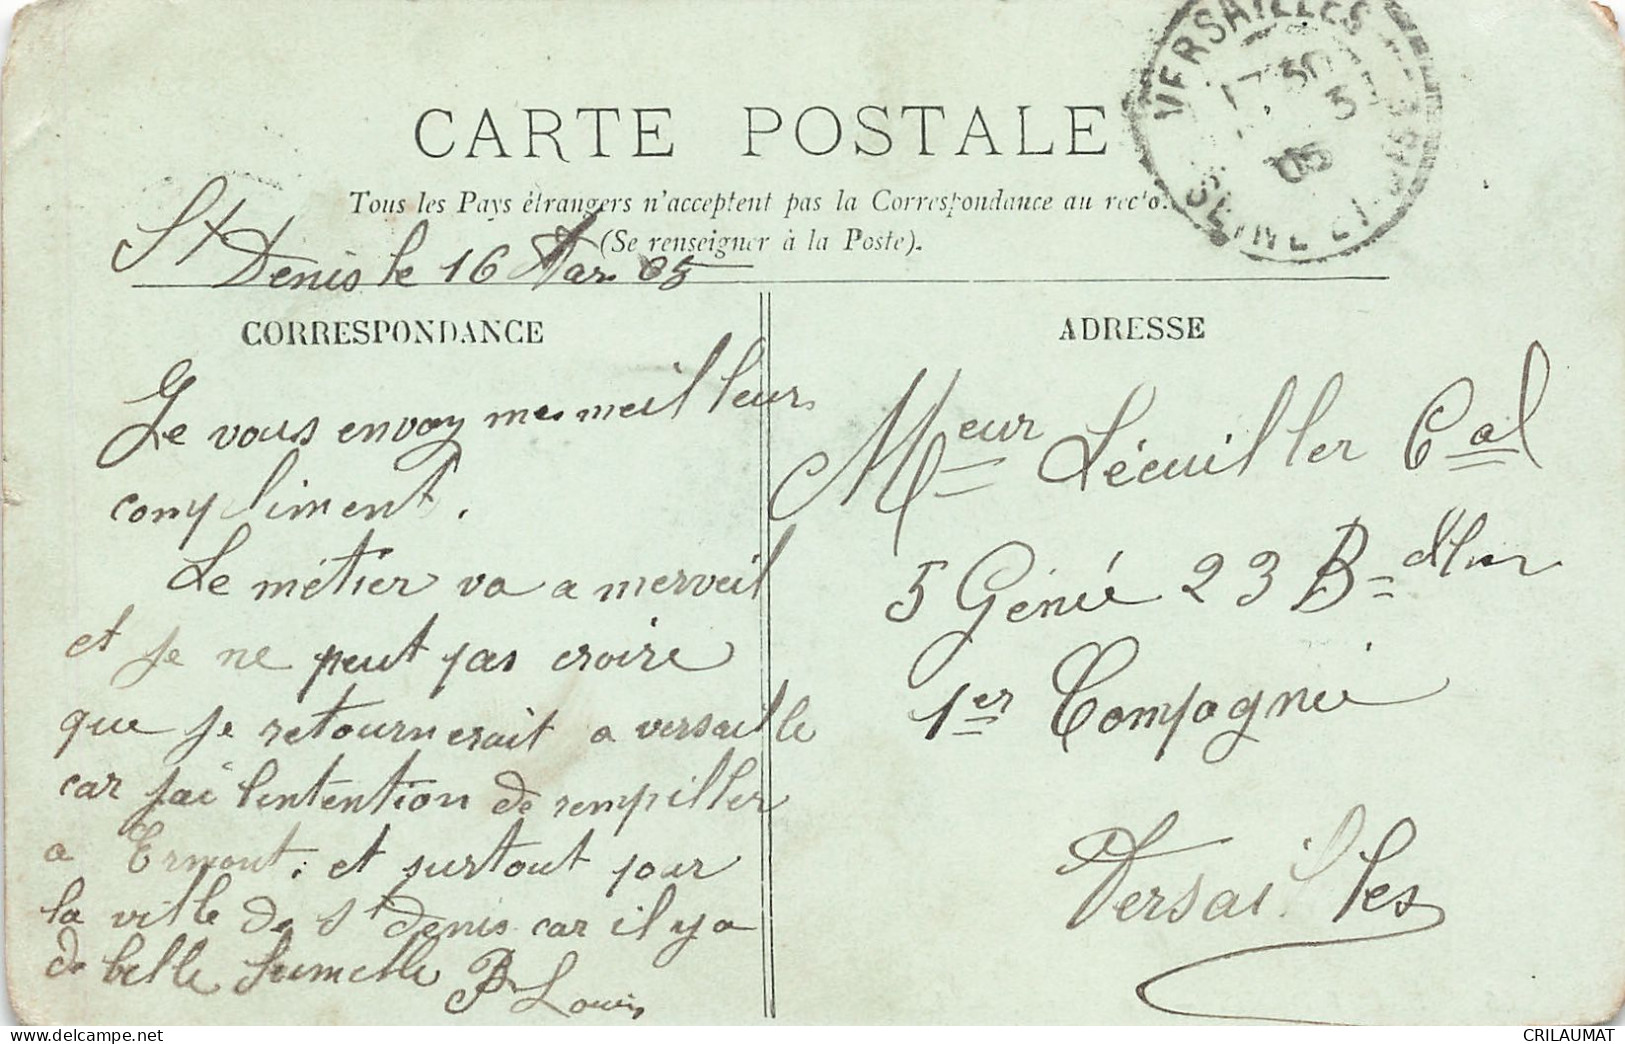 CARTE POSTALE
Tous les Pays étrangers n'acceptent pas la Correspondance au recto.
(Se renseigner à la Poste).
VERSAILLES
17 30
3
05
SEINE-ET-OISE
St Denis le 16 Mar. 05
CORRESPONDANCE
Je vous envoy mes meilleur
compliment.
Le métier va a merveil
et je ne peut pas croire
que je retournerait a versaille
car j'ai l'intention de rempiller
a Ermont; et surtout pour
la ville de St denis car il y a
de belle fumelle
Louis
ADRESSE
Meur Lécuiller Cal
5 Génie 23 B
1er Compagnie
Versailles
CRILAUMAT